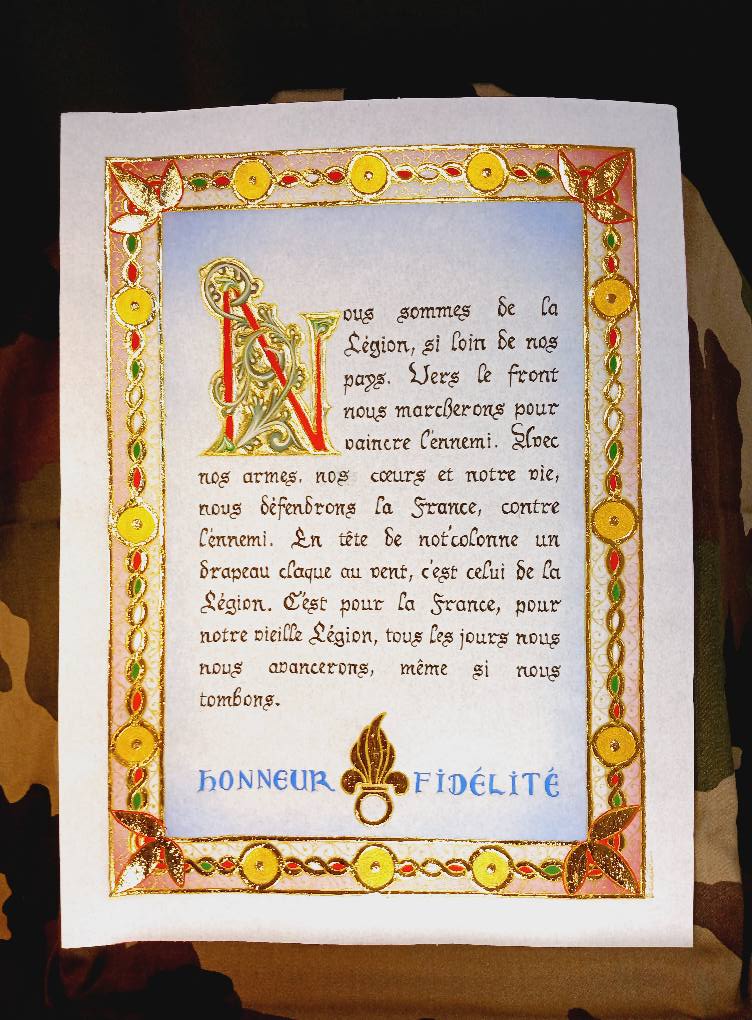 Nous sommes de la
Légion, si loin de nos
pays. Vers le front
nous marcherons pour
vaincre l'ennemi. Avec
nos armes, nos cœurs et notre vie,
nous défendrons la France, contre
l'ennemi. En tête de not'colonne un
drapeau claque au vent, c'est celui de la
Légion. C'est pour la France, pour
notre vieille Légion, tous les jours nous
nous avancerons, même si nous
tombons.
HONNEUR FIDÉLITÉ